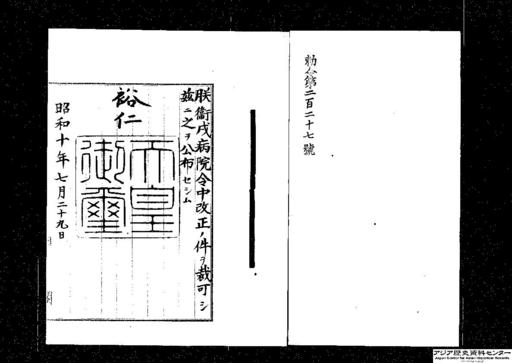 勅令第二百二十七號
朕衞戍病院令中改正ノ件ヲ裁可シ
茲ニ之ヲ公布セシム
裕仁
天皇
御璽
昭和十年七月二十九日
アジア歴史資料センター
Japan Center for Asian Historical Records